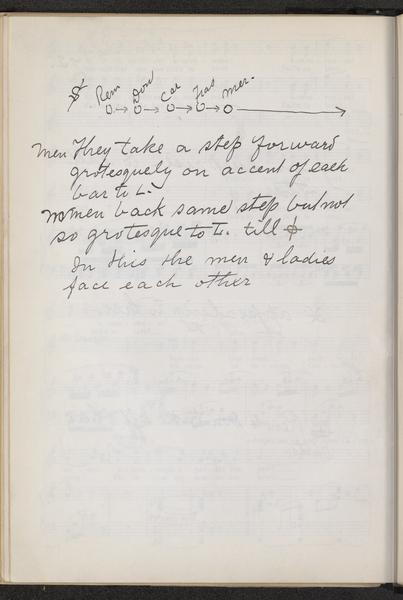 Rem Don Cat Fras Mer.
Men They take a step forward
grotesquely on accent of each
bar to L.
Women back same step but not
so grotesque to L. till
In this the men & ladies
face each other